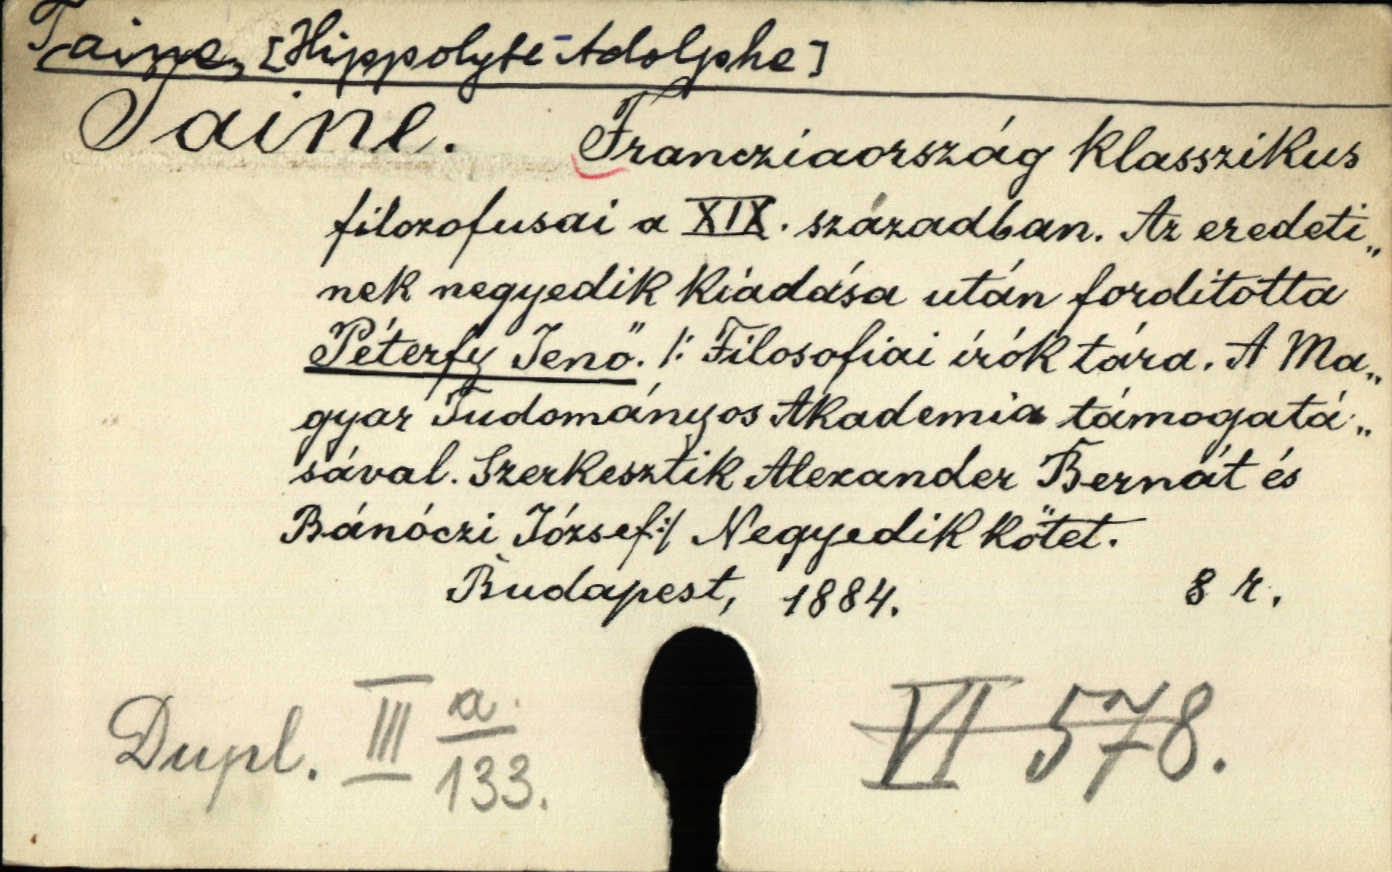 Taine, [Hippolyte-Adolphe]
Taine. Francziaország klasszikus
filozofusai a XIX. században. Az eredeti„
nek negyedik kiadása után fordította
Péterfy Jenő. /: Filosofiai írók tára. A Ma„
gyar Tudományos Akademia támogatá„
sával. Szerkesztik Alexander Bernát és
Bánóczi József:/ Negyedik kötet.
Budapest, 1884. 8 r.
Dupl. III a. 133. VI 578.